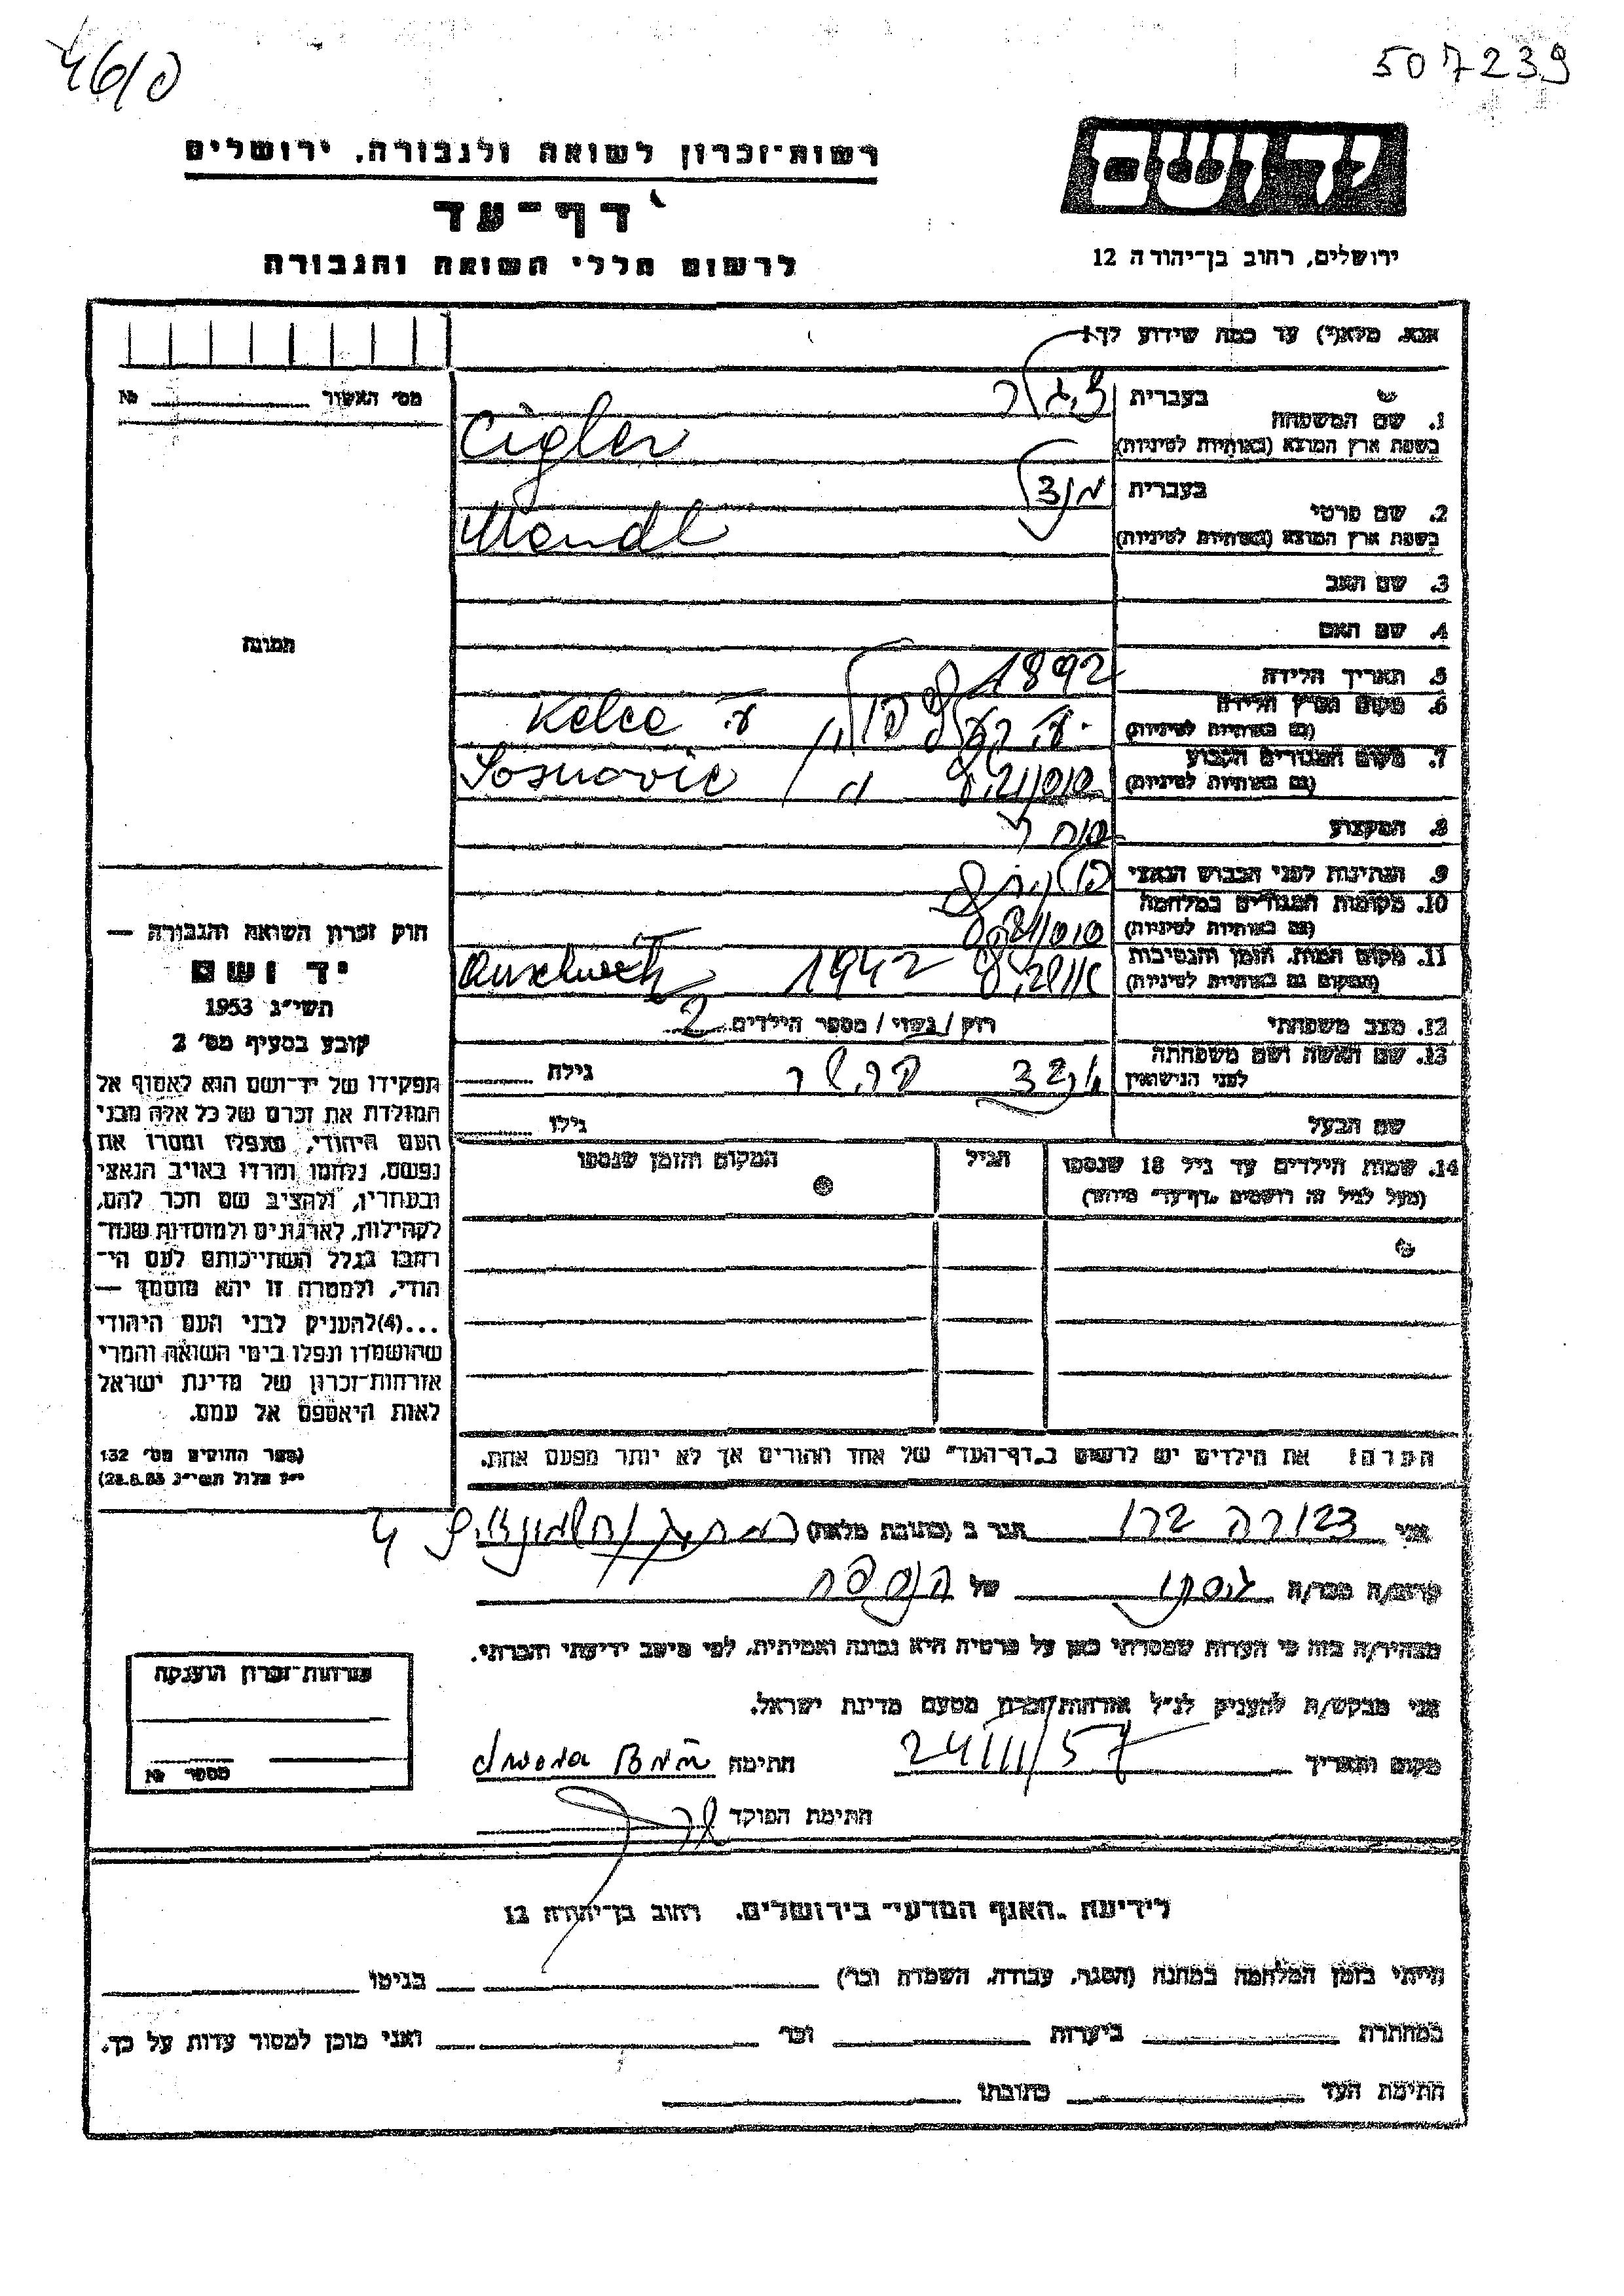 4610
507239
רשות־זכרון לשואה ולגבורה, ירושלים
דף־עד
לרשום חללי השואה והגבורה
יד ושם
ירושלים, רחוב בן־יהודה 12
אנא, מלא(י) עד כמה שידוע לך!
מס' האשור № 
1. שם המשפחה
בעברית ציגלר
בשפת ארץ המוצא (באותיות לטיניות) Cigler
2. שם פרטי
בעברית מנדל
בשפת ארץ המוצא (באותיות לטיניות) Mendl
3. שם האב
4. שם האם
תמונה
5. תאריך הלידה 1892
6. מקום וארץ הלידה
(גם באותיות לטיניות) Kelce
7. מקום המגורים הקבוע
(גם באותיות לטיניות) Sosnovic
8. המקצוע סוחר
9. הנתינות לפני הכבוש הנאצי
10. מקומות המגורים במלחמה
(גם באותיות לטיניות)
11. מקום המות, הזמן והנסיבות
(המקום גם באותיות לטיניות) 1942 Auschwitz
12. מצב משפחתי רווק / נשוי / מספר הילדים 2
13. שם האשה ושם משפחתה
לפני הנישואין גילה
שם הבעל גילו
14. שמות הילדים עד גיל 18 שנספו הגיל המקום והזמן שנספו
(מעל לגיל זה רושמים "דף־עד" מיוחד)
הערה: את הילדים יש לרשום ב"דף־העד" של אחד ההורים אך לא יותר מפעם אחת.
חוק זכרון השואה והגבורה —
יד ושם
תשי"ג 1953
קובע בסעיף מס' 2
תפקידו של יד־ושם הוא לאסוף אל
המולדת את זכרם של כל אלה מבני
העם היהודי, שנפלו ומסרו את
נפשם, נלחמו ומרדו באויב הנאצי
ובעוזריו, ולהציב שם וזכר להם,
לקהילות, לארגונים ולמוסדות שנח־
רבו בגלל השתייכותם לעם הי־
הודי, ולמטרה זו יהא מוסמך —
...(4)להעניק לבני העם היהודי
שהושמדו ונפלו בימי השואה והמרי
אזרחות־זכרון של מדינת ישראל
לאות היאספם אל עמם.
(ספר החוקים מס' 132
י"ז אלול תשי"ג 28.8.53)
אני דבורה ברון הגר ב (כתובת מלאה) 4
קרוב/ה מכר/ה גיסתו של הנספה
מצהיר/ה בזה כי העדות שמסרתי כאן על פרטיה היא נכונה ואמיתית, לפי מיטב ידיעתי והכרתי.
אני מבקש/ת להעניק לנ"ל אזרחות־זכרון מטעם מדינת ישראל.
מקום ותאריך 24/11/57 חתימה
חתימת הפוקד
אזרחות־זכרון הוענקה
מספר №
לידיעת "האגף המדעי" בירושלים, רחוב בן־יהודה 12
הייתי בזמן המלחמה במחנה (הסגר, עבודה, השמדה וכו') בגיטו
במחתרת ביערות וכו' ואני מוכן למסור עדות על כך.
חתימת העד כתובתו